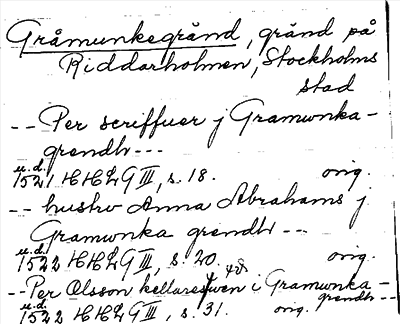 Gråmunkegränd, gränd på
Riddarholmen, Stockholms
stad
-- Per scriffuer j Gramwnka-
grendh ---
u.d.
1521 HHLG III, s. 18. orig.
-- hustrv Anna Abrahams j
Gramwnka grendh --
u.d.
1522 HHLG III, s. 20. orig.
-- Per Olsson kellaresuen i Gramwnka-
grendh --
u.d.
1522 HHLG III, s. 31. orig.